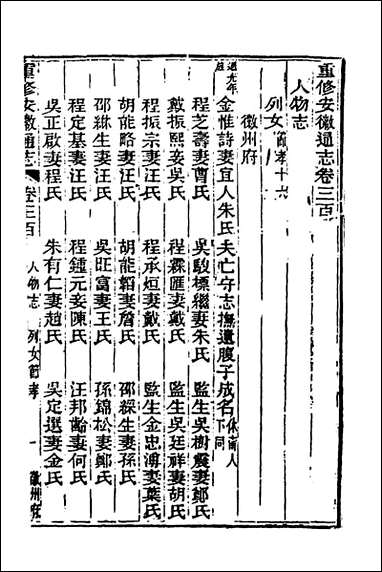 重修安徽通志卷三百
人物志
列女 節孝十六
徽州府
金惟詩妻宜人朱氏夫亡守志撫遺腹子成名 休甯人下同
程芝壽妻曹氏 吳駿標繼妻朱氏 監生吳樹震妻鄭氏
戴振熙妾吳氏 程霖匯妻戴氏 監生吳廷祥妻胡氏
程振宗妻汪氏 程承烜妻戴氏 監生金忠溥妻葉氏
胡能略妻汪氏 胡能韜妻詹氏 邵綵生妻孫氏
邵綵生妻汪氏 吳旺富妻王氏 孫錦松妻鄭氏
程定基妻汪氏 程鍾元妾陳氏 汪邦齡妻何氏
吳正啟妻程氏 朱有仁妻趙氏 吳定選妻金氏
重修安徽通志 卷三百 人物志 列女節孝 一 徽州府